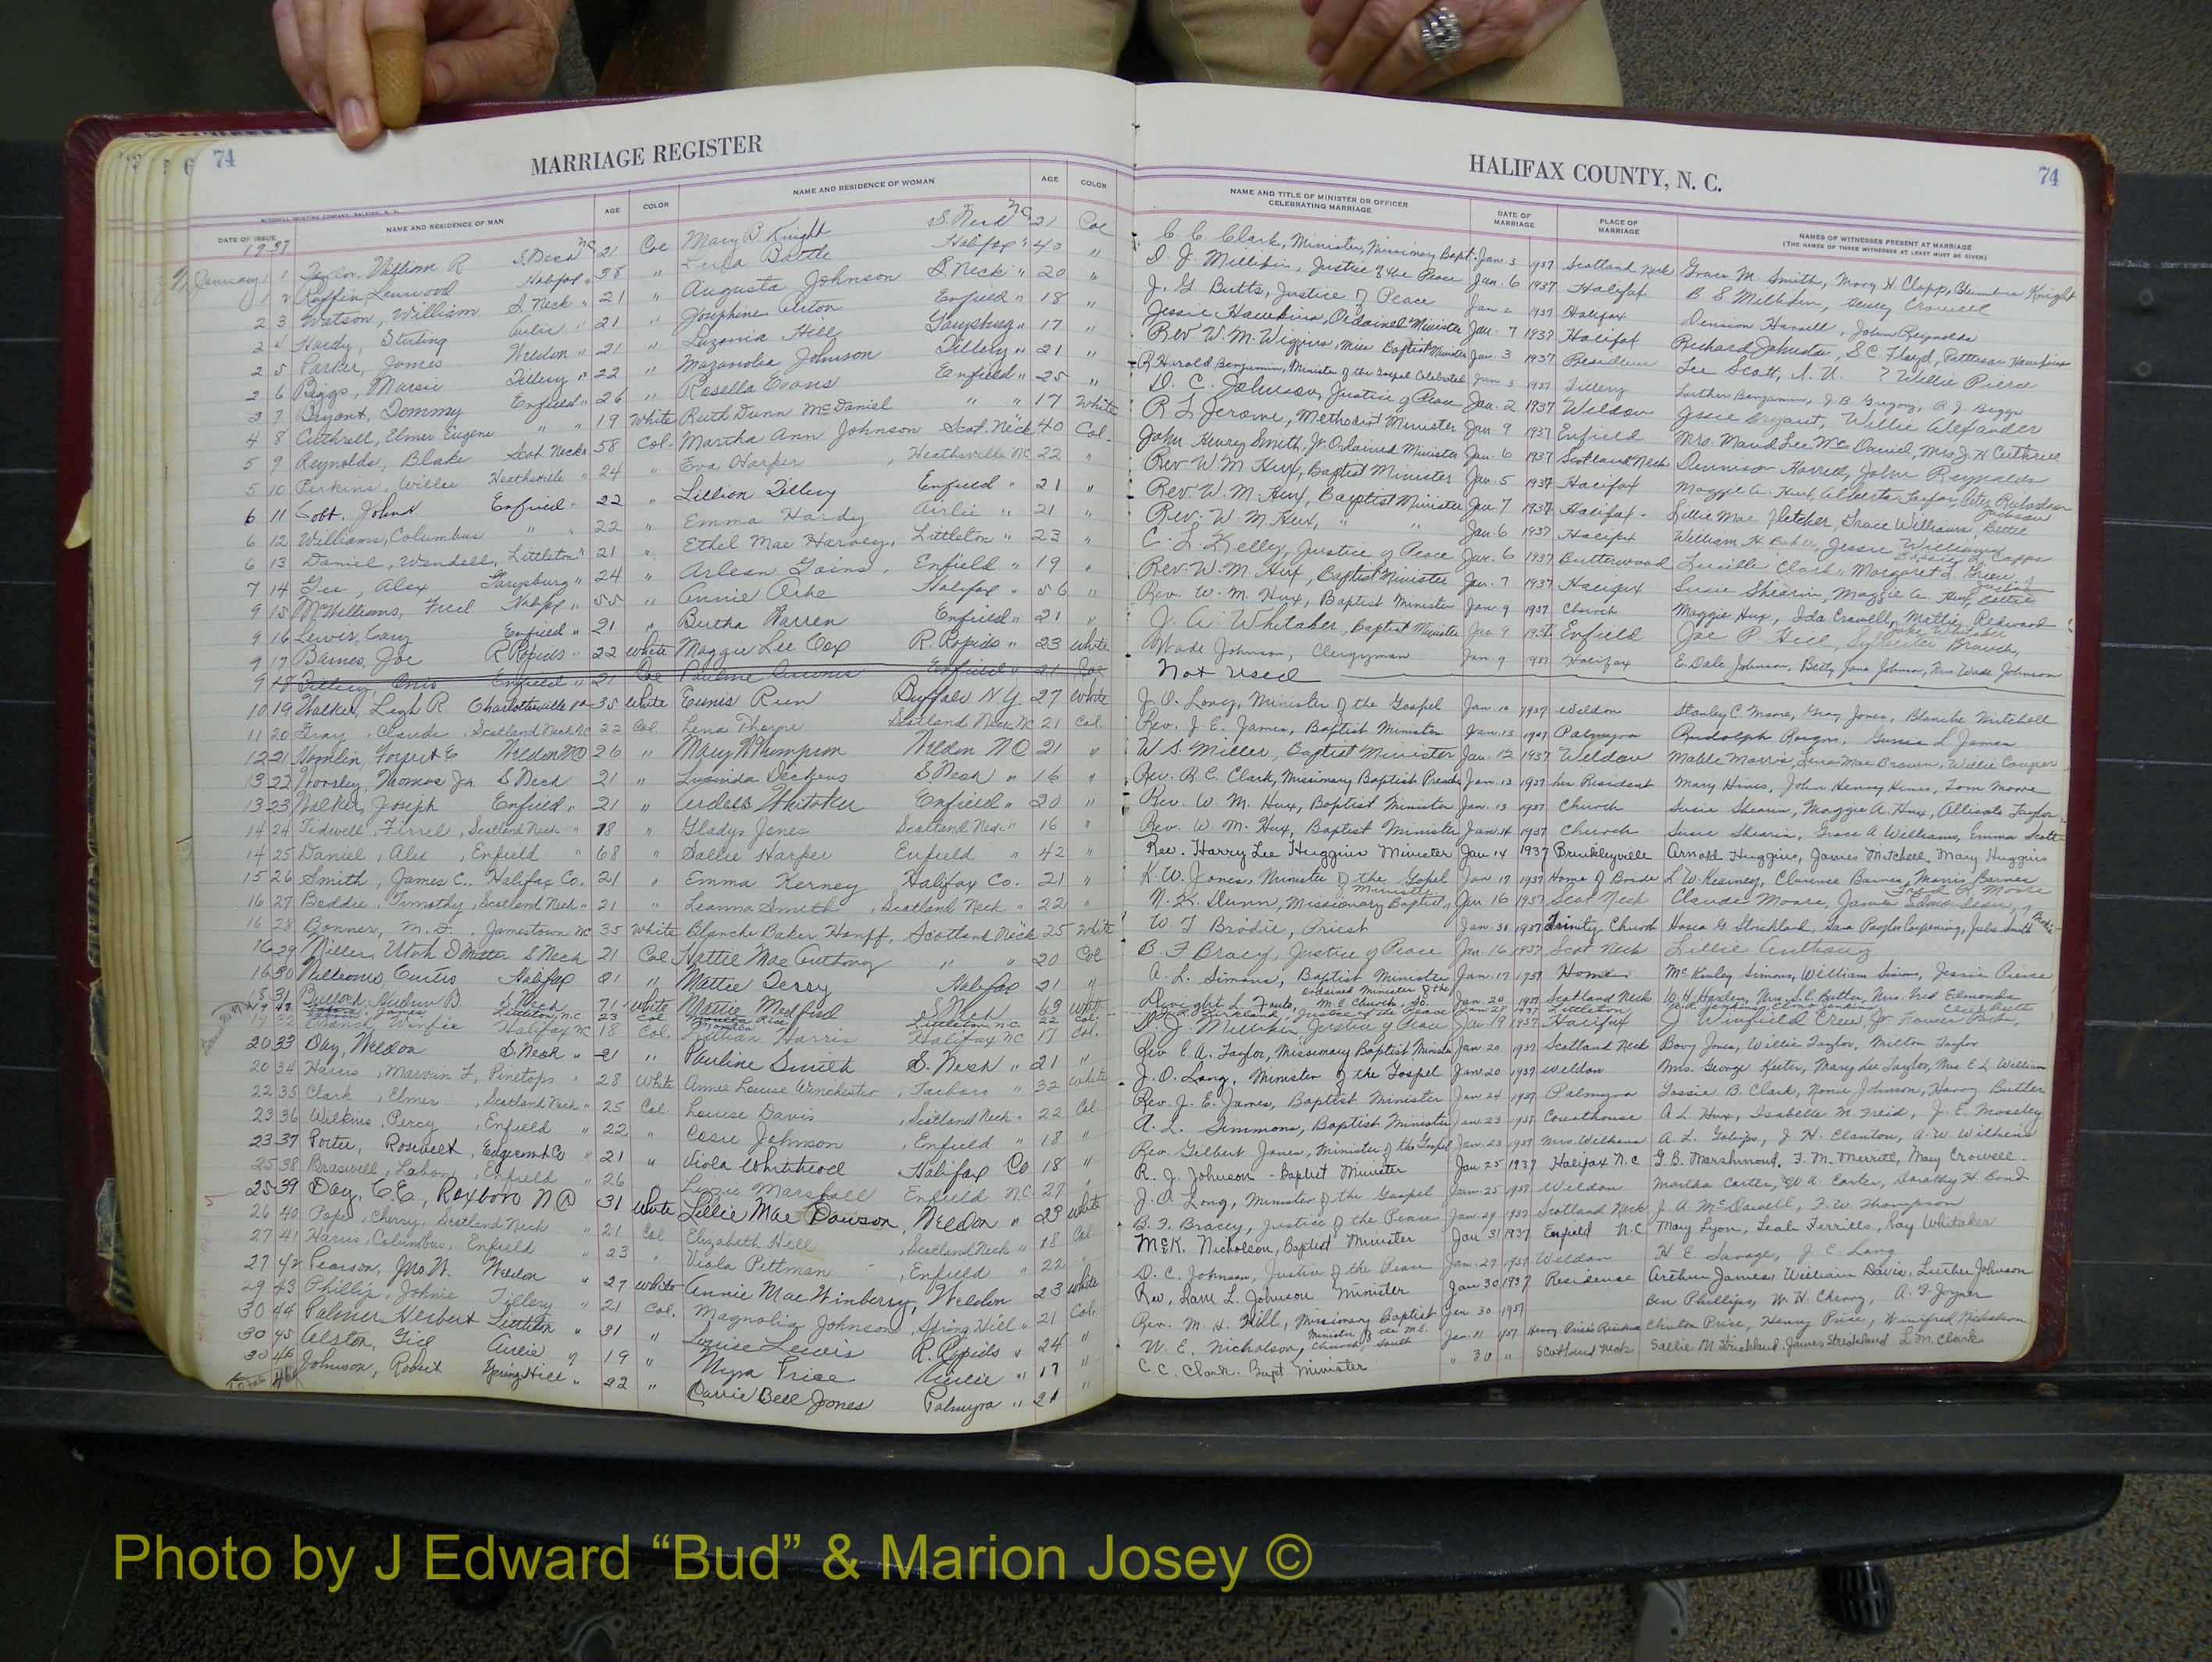 74
MARRIAGE REGISTER
DATE OF ISSUE NAME AND RESIDENCE OF MAN AGE COLOR NAME AND RESIDENCE OF WOMAN AGE COLOR
1937
January 1 1 Taylor, William R S. Neck NC 21 Col Mary B. Knight S. Neck NC 21 Col
1 2 Ruffin Linwood Halifax " 38 " Lula Battle Halifax " 40 "
2 3 Watson, William S. Neck " 21 " Augusta Johnson S. Neck " 20 "
2 4 Hardy, Sterling Airlie " 21 " Josephine Alston Enfield " 18 "
2 5 Parker, James Weldon " 21 " Luzania Hill Garysburg " 17 "
2 6 Biggs, Tillery " 22 " Johnson Tillery " 21 "
2 7 Bryant, Tommy Enfield " 26 " Rosella Evans Enfield " 25 "
4 8 Cuthrell, Elmer Eugene " " 19 White Ruth Dunn McDaniel " " 17 White
5 9 Reynolds, Blake Scot. Neck " 58 Col. Martha Ann Johnson Scot. Neck " 40 Col.
5 10 Perkins, Willie Heathsville " 24 " Eva Harper Heathsville NC 22 "
6 11 John Enfield " 22 " Lillion Tillery Enfield " 21 "
6 12 Williams, Columbus " " 22 " Emma Hardy Airlie " 21 "
6 13 Daniel, Wendell, Littleton " 21 " Ethel Mae Harvey, Littleton " 23 "
7 14 Gee, Alex Garysburg " 24 " Arlean Goins, Enfield " 19 "
9 15 McWilliams, Fred Halifax " 55 " Annie Halifax " 56 "
9 16 Lewis, Cary Enfield " 21 " Bertha Warren Enfield " 21 "
9 17 Barnes, Joe R Rapids " 22 White Maggie Lee Cox R. Rapids " 23 White
9 18 Tillery, Enfield " 21 Col Pauline Enfield " 21 Col
10 19 Walker, Legh R. Charlottesville Va 35 White Eunis Buffalo N.Y. 27 White
11 20 Gray, Claude, Scotland Neck NC 22 Col. Lena Thorpe Scotland Neck NC 21 Col.
12 21 Hamlin, Forest E Weldon NC 26 " Mary W Thompson Weldon NC 21 "
13 22 Worsley, Thomas Jr. S. Neck 21 " Lucinda Dickens S Neck " 16 "
13 23 Walker, Joseph Enfield " 21 " Ardell Whitaker Enfield " 20 "
14 24 Tidwell, Firrel, Scotland Neck " 18 " Gladys Jones Scotland Neck " 16 "
14 25 Daniel, Alex, Enfield " 68 " Sallie Harper Enfield " 42 "
15 26 Smith, James C., Halifax Co. 21 " Emma Kerney Halifax Co. 21 "
16 27 Beddie, Timothy, Scotland Neck " 21 " Leanna Smith, Scotland Neck " 22 "
16 28 Bonner, M. D., Jamestown NC 35 White Blanche Baker Hanff, Scotland Neck 25 White
16 29 S Neck 21 Col Hattie Mae Anthony " " 20 Col
16 30 Williams, Curtis Halifax 21 " Mattie Derry Halifax 21 "
18 31 Bullock, B S. Neck 71 White Mattie Medford S Neck 63 White
James Littleton, n.c. 23 Col. Littleton n.c. 22 Col.
19 32 Branch, Halifax NC 18 Col. Lillian Harris Halifax NC 17 Col.
20 33 Day, Weldon S. Neck " 21 " Pauline Smith S. Neck " 21 "
20 34 Harris, Marvin F, Pinetops " 28 White Annie Louise Winchester, Tarboro " 32 White
22 35 Clark, Elmer, Scotland Neck " 25 Col. Louise Davis, Scotland Neck " 22 Col.
23 36 Wilkins, Percy, Enfield " 22 " Cosie Johnson, Enfield " 18 "
23 37 Porter, Rosevelt, Edgecomb Co " 21 " Viola Whitehead Halifax Co 18 "
25 38 Braswell, Labon, Enfield " 26 " Lizzie Marshall Enfield NC 27 "
25 39 Day, C.E., Roxboro N C 31 White Lillie Mae Dawson, Weldon " 29 White
26 40 Pope, Cherry, Scotland Neck 21 Col Elizabeth Hill, Scotland Neck " 18 Col.
27 41 Harris, Columbus, Enfield " 23 " Viola Pittman, Enfield " 22 "
27 42 Pearson, Jno. W. Weldon " 27 White Annie Mae Winberry, Weldon 23 White
29 43 Phillips, Johnie Tillery " 21 Col. Magnolia Johnson, Spring Hill " 21 Col.
30 44 Palmer, Herbert Littleton " 31 " Louise Lewis R. Rapids " 24 "
30 45 Alston, Airlie " 19 " Myra Price Airlie " 17 "
30 46 Johnson, Robert Spring Hill " 22 " Carrie Bell Jones Palmyra " 21 "
Total 46
HALIFAX COUNTY, N. C.
74
NAME AND TITLE OF MINISTER OR OFFICER CELEBRATING MARRIAGE DATE OF MARRIAGE PLACE OF MARRIAGE NAMES OF WITNESSES PRESENT AT MARRIAGE
(THE NAMES OF THREE WITNESSES AT LEAST MUST BE GIVEN)
C. C. Clark, Minister, Missionary Bapt. Jan 3 1937 Scotland Neck Grace M. Smith, Mary H. Clapp, Knight
D. J. Milliken, Justice of the Peace Jan. 6 1937 Halifax B. S Milliken, Crowell
J. G. Butts, Justice of Peace Jan 2 1937 Halifax Dennison Harrell, John Reynolds
Jessie Hawkins, Ordained Minister Jan. 7 1937 Halifax Richard Johnston, S C Floyd, Hawkins
Rev. W. M. Wiggins, Miss Baptist Minister Jan. 3 1937 Residence Lee Scott, Willie Pierce
R Harold Benjamin, Minister of the Gospel Celebrated Jan 3 1937 Tillery Luther Benjamin, J. B. Gregory, R J. Biggs
D. C. Johnson, Justice of Peace Jan. 2 1937 Weldon Jessie Bryant, Willie Alexander
R. L. Jerome, Methodist Minister Jan 9 1937 Enfield Mrs. Maud Lee McDaniel, Mrs J. H Cuthrell
John Henry Smith, Jr. Ordained Minister Jan. 6 1937 Scotland Neck Dennison Harrell, John Reynolds
Rev W. M Hux, Baptist Minister Jan. 5 1937 Halifax Maggie A. Hux,
Rev. W. M. Hux, Baptist Minister Jan 7 1937 Halifax Lillie Mae Fletcher, Grace Williams, Bettie
Rev. W. M Hux, " " Jan. 6 1937 Halifax William H Baker, Jessie Williams
C. L. Kelly, Justice of Peace Jan. 6 1937 Butterwood Lucille Clark, Margaret L Green,
Rev. W. M. Hux, Baptist Minister Jan. 7 1937 Halifax Susie Shearin, Maggie A. Hux, Bettie
Rev. W. M. Hux, Baptist Minister Jan 9 1937 Church Maggie Hux, Ida Crowell, Mattie
J. A. Whitaker, Baptist Minister Jan. 9 1937 Enfield Joe P. Hill, Sylvester Branch,
Wade Johnson, Clergyman Jan. 9 1937 Halifax E. Dale Johnson, Betty Jane Johnson, Mrs Wade Johnson
Not used
J. O. Long, Minister of the Gospel Jan. 10 1937 Weldon Stanley C. Moore, Gray Jones, Blanche Mitchell
Rev. J. E. James, Baptist Minister Jan. 13 1937 Palmyra Randolph Gussie L. James
W. S. Miller, Baptist Minister Jan. 12 1937 Weldon Mable Morris, Lena Mae Brown, Willie Cooper
Rev. R. C. Clark, Missionary Baptist Preacher Jan. 13 1937 her Resident Mary Hines, John Henry Hines, Tom Moore
Rev. W. M. Hux, Baptist Minister Jan. 13 1937 Church Susie Shearin, Maggie A. Hux, Taylor
Rev. W. M. Hux, Baptist Minister Jan 14 1937 Church Susie Shearin, Grace A. Williams, Emma Scott
Rev. Harry Lee Huggins Minister Jan 14 1937 Brinkleyville Arnold Huggins, James Mitchell, Mary Huggins
K. W. Jones, Minister of the Gospel Jan 17 1937 Home of Bride L. W. Kearney, Clarence Barnes, Morris Barnes
N. K. Dunn, Missionary Baptist Minister Jan. 16 1937 Scot Neck Claude Moore, James Edmondson, Fred R. Moore
W T Brodie, Priest Jan. 30 1937 Trinity Church Hosea G. Strickland, Sara Peoples Carpening, Jules Smith
B. F Bracy, Justice of Peace Jan. 16 1937 Scot Neck Lillie Anthony
A. L. Simons, Baptist Minister Jan. 17 1937 Home McKinley Simons, William Simons, Jessie Pierce
Dwight L. Fouts, ordained Minister of the M. E. Church, So. Jan. 20 1937 Scotland Neck W. H. Harden, Mrs. S. E. Butler, Mrs. Fred Edmonds
Kirkland, Justice of the Peace 1937 Littleton
D. J. Milliken Justice of Peace Jan. 19 1937 Halifax J. Winfield Crew, Jr
Rev E. A. Taylor, Missionary Baptist Minister Jan 20 1937 Scotland Neck Jones, Willie Taylor, Milton Taylor
J. O. Long, Minister of the Gospel Jan. 20 1937 Weldon Mrs. George Keeter, Mary Lee Taylor, Mrs. E. L William
Rev. J. E. James, Baptist Minister Jan 24 1937 Palmyra Tossie B. Clark, Johnson, Harry Butler
A. L. Simmons, Baptist Minister Jan 23 1937 Courthouse A. L. Hux, Isabelle M. Freid, J. E. Moseley
Rev. Gilbert Jones, Minister of the Gospel Jan. 23 1937 Mrs. Wilkins A. L. J. H. Clanton, A. W. Wilkins
R. J. Johnson - Baptist Minister Jan 25 1937 Halifax N. C G. B. Marshmond, F. M. Merritt, Mary Crowell
J. O. Long, Minister of the Gospel Jan. 25 1937 Weldon Martha Carter, W A. Carter, Dorathy H. Bond
B. F. Bracey, Justice of the Peace Jan. 29 1937 Scotland Neck J. A McDowell, F. W. Thompson
McK. Nicholson, Baptist Minister Jan 31 1937 Enfield N. C Mary Lyon, Leah Ferrills, Ray Whitaker
D. C. Johnson, Justice of the Peace Jan. 27 1937 Weldon H. E. Savage, J. E. Long
Rev. Sam L. Johnson Minister Jan 30 1937 Residence Arthur James, William Davis, Luther Johnson
Rev. M. H. Hill, Missionary Baptist Jan 30 1937 Ben Phillips, W. H. Cherry, A. F. Joyner
W. E. Nicholson, Minister of the M.E. Church, South Jan. 31 1937 Henry Price's Residence Clinton Price, Henry Price, Winifred Nicholson
C. C. Clark. Bapt Minister " 30 " Scotland Neck Sallie M. Strickland, James Strickland L. M. Clark
Photo by J Edward “Bud” & Marion Josey ©